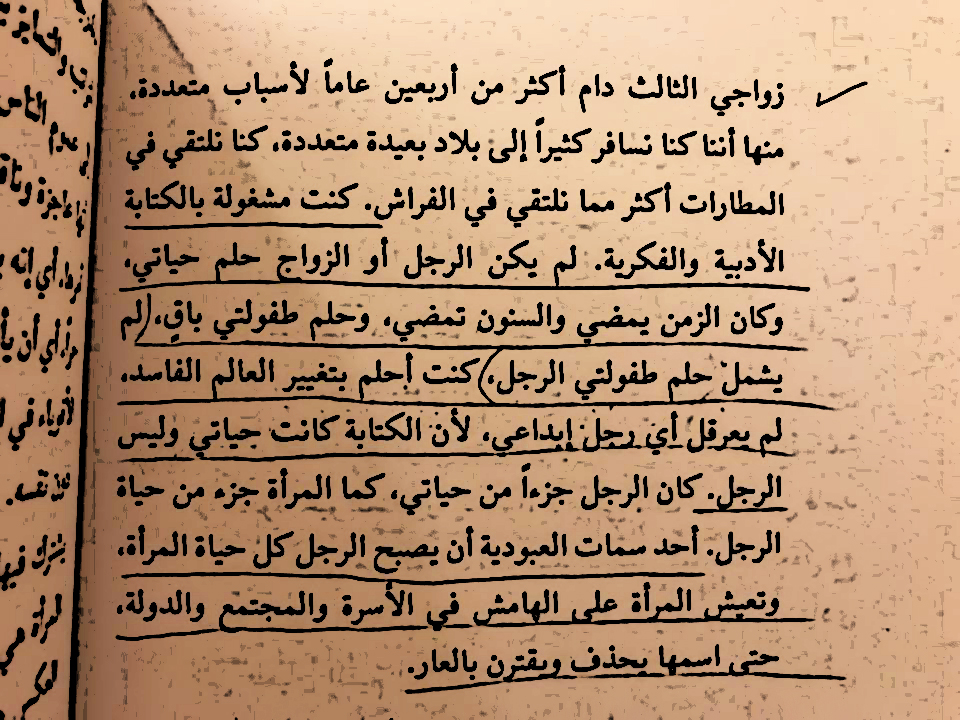 زواجي الثالث دام أكثر من أربعين عاماً لأسباب متعددة،
منها أننا كنا نسافر كثيراً إلى بلاد بعيدة متعددة، كنا نلتقي في
المطارات أكثر مما نلتقي في الفراش. كنت مشغولة بالكتابة
الأدبية والفكرية. لم يكن الرجل أو الزواج حلم حياتي،
وكان الزمن يمضي والسنون تمضي، وحلم طفولتي باقٍ، لم
يشمل حلم طفولتي الرجل، كنت أحلم بتغيير العالم الفاسد،
لم يعرقل أي رجل إبداعي، لأن الكتابة كانت حياتي وليس
الرجل. كان الرجل جزءاً من حياتي، كما المرأة جزء من حياة
الرجل. أحد سمات العبودية أن يصبح الرجل كل حياة المرأة،
وتعيش المرأة على الهامش في الأسرة والمجتمع والدولة،
حتى اسمها يحذف ويقترن بالعار.